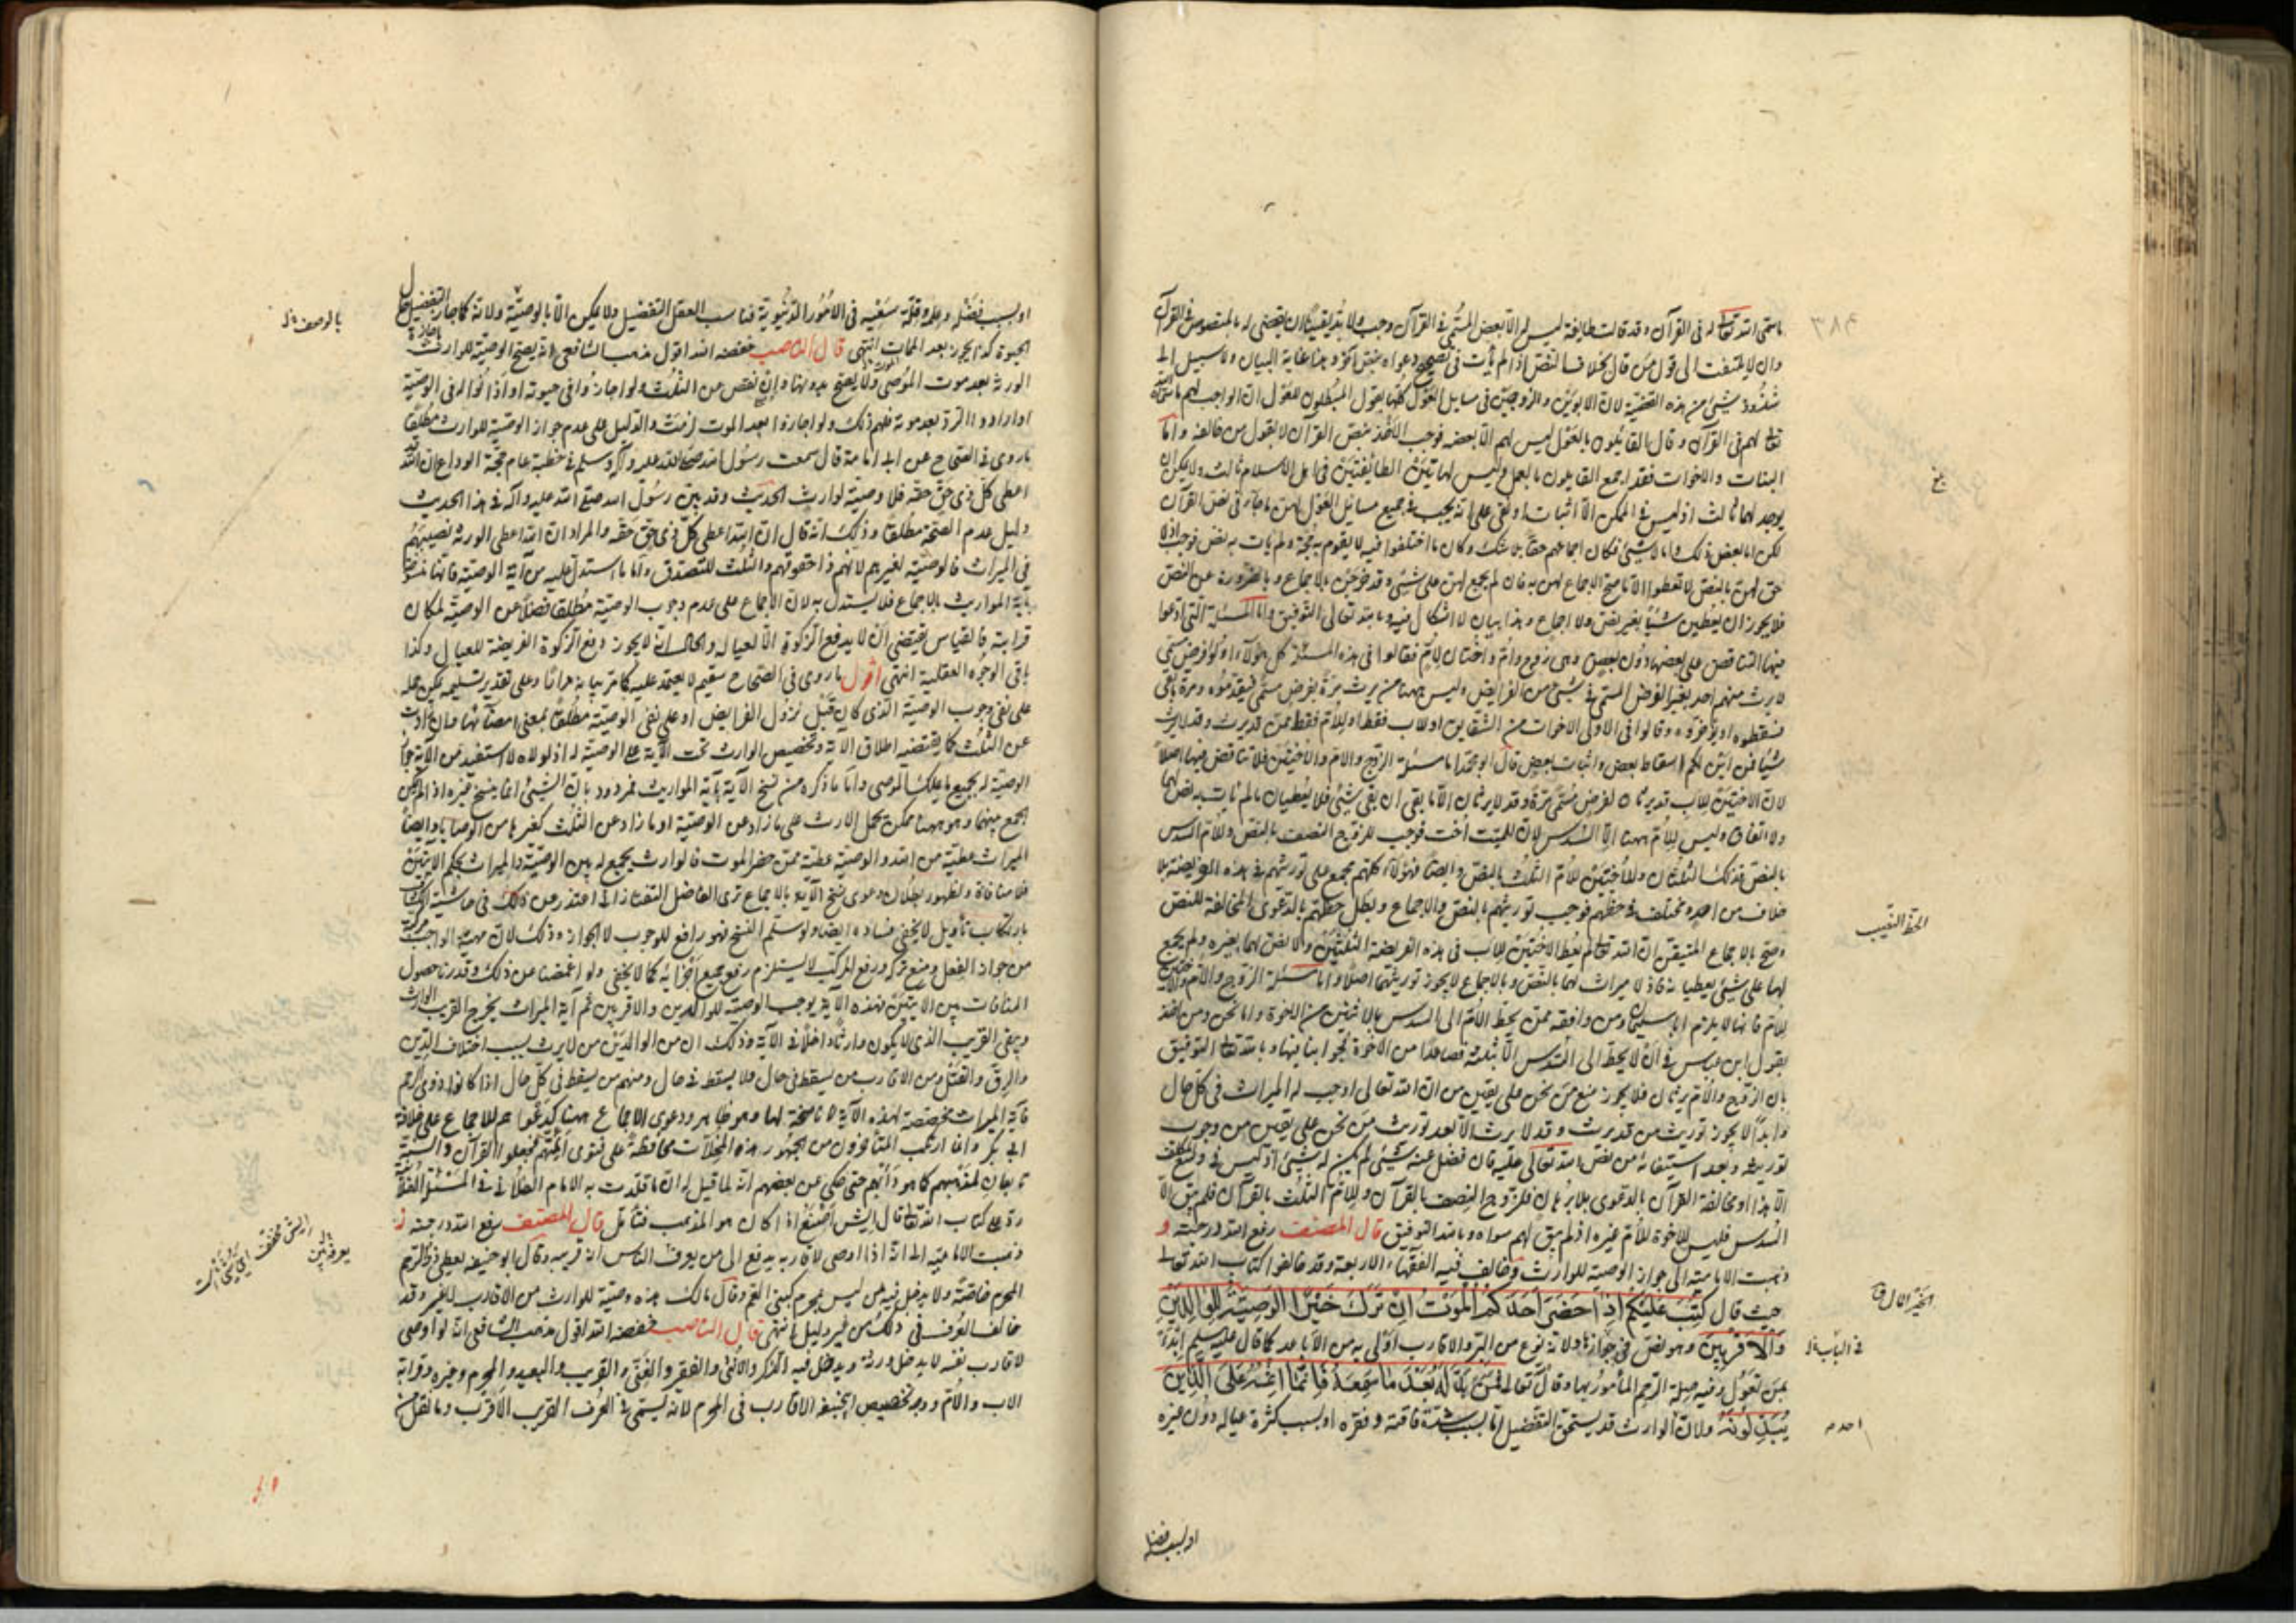 ما سمى الله تعالى له في القرآن وقد قالت طايفة ليس له الا بعض المسمى في القرآن وجب ولا بد يقينا ان يقضى له بالمنصوص في القرآن
وان لا يلتفت الى قول من قال بخلاف النص اذ لم يأت في تصحيح دعواه بنص آخر وهذا غاية البيان ولا سبيل الى
شذوذ شيئ من هذه القضية لان الابوين والزوجين في مسايل العول كلها يقول المبطلون للعول ان الواجب لهم ما سمى الله
تعالى لهم في القرآن وقال القائلون بالعول ليس لهم الا بعضه فوجب الاخذ بنص القرآن لا بقول من خالفه واما
البنات والاخوات فقد اجمع القايلون بالعول وليس لهاتين الطائفتين في اهل الاسلام ثالث ولا يمكن ان
يوجد لهما ثالث اذ ليس في الممكن الا اثبات او نفي على انه يجب في جميع مسايل العول لهن ما جاء في نص القرآن
لكن اما بعض ذلك واما لا شيئ فكان اجماعهم حقا بلا شك وكان ما اختلفوا فيه لا يقوم به حجة ولم يأت به نص فوجب اذ لا
حق لهن بالنص لا يعطوا الا ما صح الاجماع لهن به فان لم يجمع لهن على شيئ وقد خرجن بالاجماع وبالضرورة عن النص
فلا يجوز ان يعطين شيئا بغير نص ولا اجماع وهذا بيان لا اشكال فيه وبالله تعالى التوفيق واما المسئلة التي ادعوا
فيها التناقض على بعضها دون بعض وهي زوج وام واختان لام فقالوا في هذه المسئلة كل هؤلاء اولوا فرض سمي
لا يرث منهم احد بغير الفرض المسمى في شيئ من الفرايض وليس ههنا من يرث مرة بفرض مسمى فيقدموه ومرة ما بقي
فسقطوه او يؤخروه وقالوا في الاولى الاخوات من الشقايق او لاب فقط او للام فقط ممن قد يرث وقد لا يرث
شيئا فمن اين لكم اسقاط بعض واثبات بعض قال ابو محمد اما مسئلة الزوج والام والاختين فلا تناقض فيها اصلا
لان الاختين للاب قد يرثان لفرض مسمى مرة وقد لا يرثان الا ما بقي ان بقي شيئ فلا يعطيان ما لم يأت به نص لهما
ولا اتفاق وليس للام ههنا الا السدس لان للميت اخت فوجب للزوج النصف بالنص وللام السدس
بالنص فذلك الثلثان وللاختين للام الثلث بالنص وايضا فهؤلاء كلهم مجمع على توريثهم في هذه الفريضة بلا
خلاف من احد ومختلف في حظهم فوجب توريثهم بالنص والاجماع وبطل حظهم بالدعوى المخالفة للنص
وصح بالاجماع المتيقن ان الله تعالى لم يعط الاختين للاب في هذه الفريضة الثلثين ولا نص لهما بغيره ولم يجمع
لهما على شيئ يعطيانه فاذ لا ميراث لهما بالنص وبالاجماع لا يجوز توريثهما اصلا واما مسئلة الزوج والام والاختين
للام فانها لا يلزم ابا سليمان ومن وافقه ممن يحط الام الى السدس بالاثنين من الاخوة واما نحن ومن اخذ
بقول ابن عباس في ان لا يحط الى السدس الا بثلثة فصاعدا من الاخوة فجوابنا فيها وبالله تعالى التوفيق
بان الزوج والام يرثان فلا يجوز منع من نحن على يقين من ان الله تعالى اوجب له الميراث في كل حال
وابدا لا يجوز توريث من قد يرث وقد لا يرث الا بعد توريث من نحن على يقين من وجوب
توريثه وبعد استيفائه من نص الله تعالى عليه فان فضل عنه شيئ لم يكن له شيئ اذ ليس في
الا هذا او مخالفة القرآن بالدعوى بلا برهان فللزوج النصف بالقرآن وللام الثلث بالقرآن فلم يبق الا
السدس فليس للاخوة للام غيره اذ لم يبق لهم سواه وبالله التوفيق قال المصنف رفع الله درجته و
ذهبت الامامية الى جواز الوصية للوارث وخالف فيه الفقهاء الاربعة وقد خالفوا كتاب الله تعالى
حيث قال كتب عليكم اذا حضر احدكم الموت ان ترك خيرا الوصية للوالدين
والاقربين وهو نص في جوازها ولانه نوع من البر والاقارب اولى به من الاباعد كما قال عليه السلام ابدأ
بمن تعول وفيه صلة الرحم المأمور بها وقال تعالى فمن بدله بعد ما سمعه فانما اثمه على الذين
يبدلونه ولان الوارث قد يستحق التفضيل اما بسبب شدة فاقته وفقره او بسبب كثرة عياله دون غيره
بلغ
الحظ النصيب
الخير المال ق
في الباب خ ل
احد م
او بسبب فضله
او بسبب فضله وعلمه وقلة سعيه في الامور الدنيوية فناسب العقل التفضيل ولا يمكن الا بالوصية ولانه كما جاز التفضيل حال
الحيوة كذا يجوز بعد الممات انتهى قال الناصب خفضه الله اقول مذهب الشافعي انه يصح الوصية للوارث باجازة
الورثة بعد موت الموصي ولا يصح بدونها وان نقص من الثلث ولو اجازوا في حيوته او اذنوا له في الوصية
او ارادوا الرد بعد موته فلهم ذلك ولو اجازوا بعد الموت لزمت والدليل على عدم جواز الوصية للوارث مطلقا
ما روي في الصحاح عن ابي امامة قال سمعت رسول الله صلى الله عليه وآله وسلم في خطبة عام حجة الوداع ان الله قد
اعطى كل ذي حق حقه فلا وصية لوارث الحديث وقد بين رسول الله صلى الله عليه وآله في هذا الحديث
دليل عدم الصحة مطلقا وذلك انه قال ان الله اعطى كل ذي حق حقه والمراد ان الله اعطى الورثة نصيبهم
في الميراث فالوصية لغيرهم لانهم اخذوا حقوقهم والثلث للتصدق واما ما استدل عليه من آية الوصية فانها منسوخة
بآية المواريث بالاجماع فلا يستدل به لان الاجماع على عدم وجوب الوصية مطلقا فضلا عن الوصية لمكان
قرابته فالقياس يقتضي ان لا يدفع الزكوة الا لعياله والحال انه لا يجوز دفع الزكوة الفريضة للعيال وكذا
باقي الوجوه العقلية انتهى اقول ما روي في الصحاح سقيم لا يعتمد عليه كما مر بيانه مرارا وعلى تقدير تسليمه يمكن حمله
على نفي وجوب الوصية الذي كان قبل نزول الفرايض او على نفي الوصية مطلقا بمعنى امضائها وان زادت
عن الثلث كما يقتضيه اطلاق الآية وتخصيص الوارث تحت الآية على الوصية له اذ لولاه لاستفيد من الآية جواز
الوصية له بجميع ما يملك الموصي واما ما ذكره من نسخ الآية بآية المواريث فمردود بان الشيئ انما ينسخ غيره اذا لم يمكن
الجمع بينهما وهو ههنا ممكن بحمل الارث على ما زاد عن الوصية او ما زاد عن الثلث كغيرها من الوصايا وايضا
الميراث عطية من الله والوصية عطية ممن حضر الموت فالوارث يجمع له بين الوصية والميراث بحكم الآيتين
فلا منافاة ولظهور بطلان دعوى نسخ الآية بالاجماع ترى الفاضل التفتازاني اعتذر عن ذلك في حاشية الكشاف
بارتكاب تأويل لا يخفى فساده ايضا ولو سلم النسخ فهو رافع للوجوب لا الجواز وذلك لان مهية الواجب مركبة
من جواز الفعل ومنع تركه ورفع المركب لا يستلزم رفع جميع اجزائه كما لا يخفى ولو اغمضنا عن ذلك وقدرنا حصول
المنافات بين الآيتين فهذه الآية يوجب الوصية للوالدين والاقربين ثم آية الميراث يخرج القريب الوارث
ويبقى القريب الذي لا يكون وارثا داخلا في الآية وذلك ان من الوالدين من لا يرث بسبب اختلاف الدين
والرق والقتل ومن الاقارب من يسقط في حال ولا يسقط في حال ومنهم من يسقط في كل حال اذا كانوا ذوي رحم
فآية الميراث مخصصة لهذه الآية لا ناسخة لها وهو ظاهر ودعوى الاجماع ههنا كدعواهم للاجماع على خلافة
ابي بكر وانما ارتكب المتأخرون من الجمهور هذه المحالات محافظة على فتوى ائمتهم فجعلوا القرآن والسنة
تابعان لمذهبهم كما هو دأبهم حتى حكي عن بعضهم انه لما قيل له ان ما قلدت به الامام الفلاني في المسئلة الفلانية
رد على كتاب الله تعالى قال ايش اصنع اذا كان هو المذهب فتأمل قال المصنف رفع الله درجته ز
ذهبت الامامية الى انه اذا اوصى لاقاربه يدفع الى من يعرف الناس انه قريبه وقال ابو حنيفة يعطى ذي الرحم
المحرم خاصة ولا يدخل فيه من ليس بمحرم كبني العم وقال مالك هذه وصية للوارث من الاقارب لا غير وقد
خالف العرف في ذلك من غير دليل انتهى قال الناصب خفضه الله اقول مذهب الشافعي انه لو اوصى
لاقارب نفسه لا يدخل ورثته ويدخل فيه الذكر والانثى والفقير والغني والقريب والبعيد والمحرم وغيره وقرابة
الاب والام ووجه تخصيص ابي حنيفة الاقارب في المحرم لانه يسمى في العرف القريب الاقرب وما نقل من
بالوصف خ ل